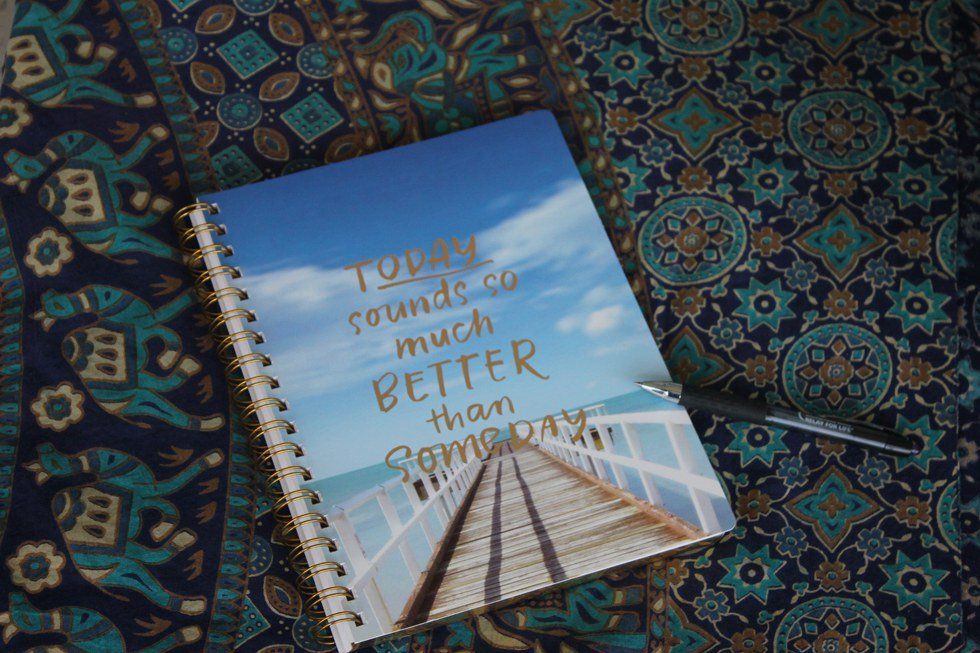 TODAY
sounds so
much
BETTER
than
SOMEDAY
RELAY FOR LIFE